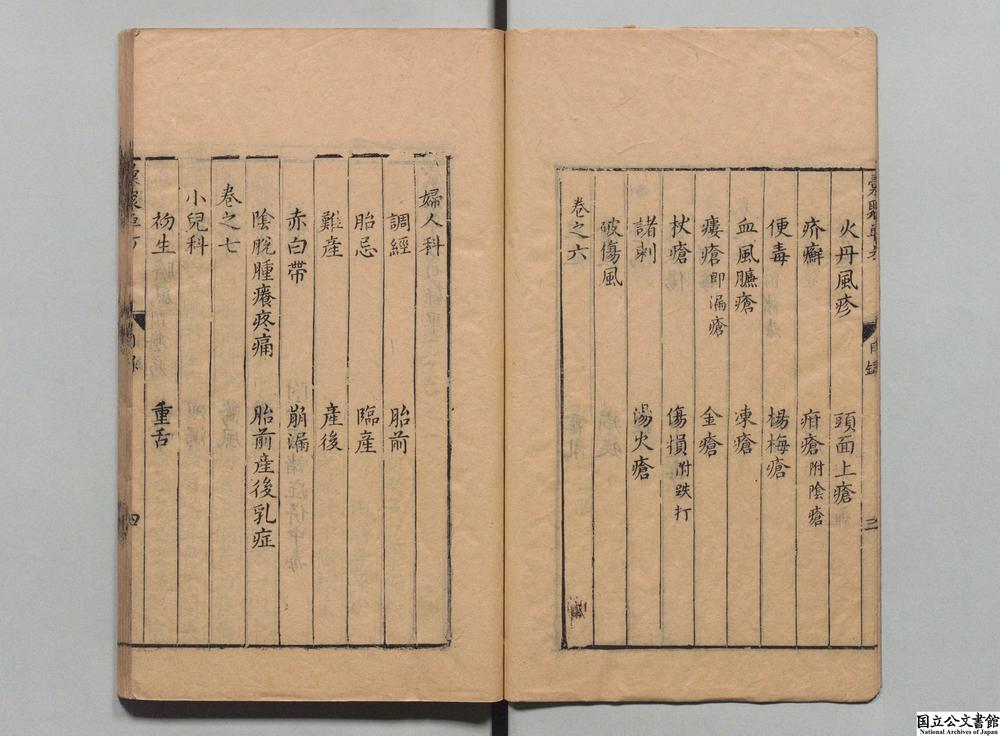 火丹風疹　頭面上瘡
疥癬　疳瘡附陰瘡
便毒　楊梅瘡
血風臁瘡　凍瘡
瘻瘡即漏瘡　金瘡
杖瘡　傷損附跌打
諸刺　湯火瘡
破傷風
卷之六
婦人科
調經　胎前
胎忌　臨產
難產　產後
赤白帶　崩漏
陰脫腫癢疼痛　胎前產後乳症
卷之七
小兒科
初生　重舌
目錄
三
四
国立公文書館
National Archives of Japan